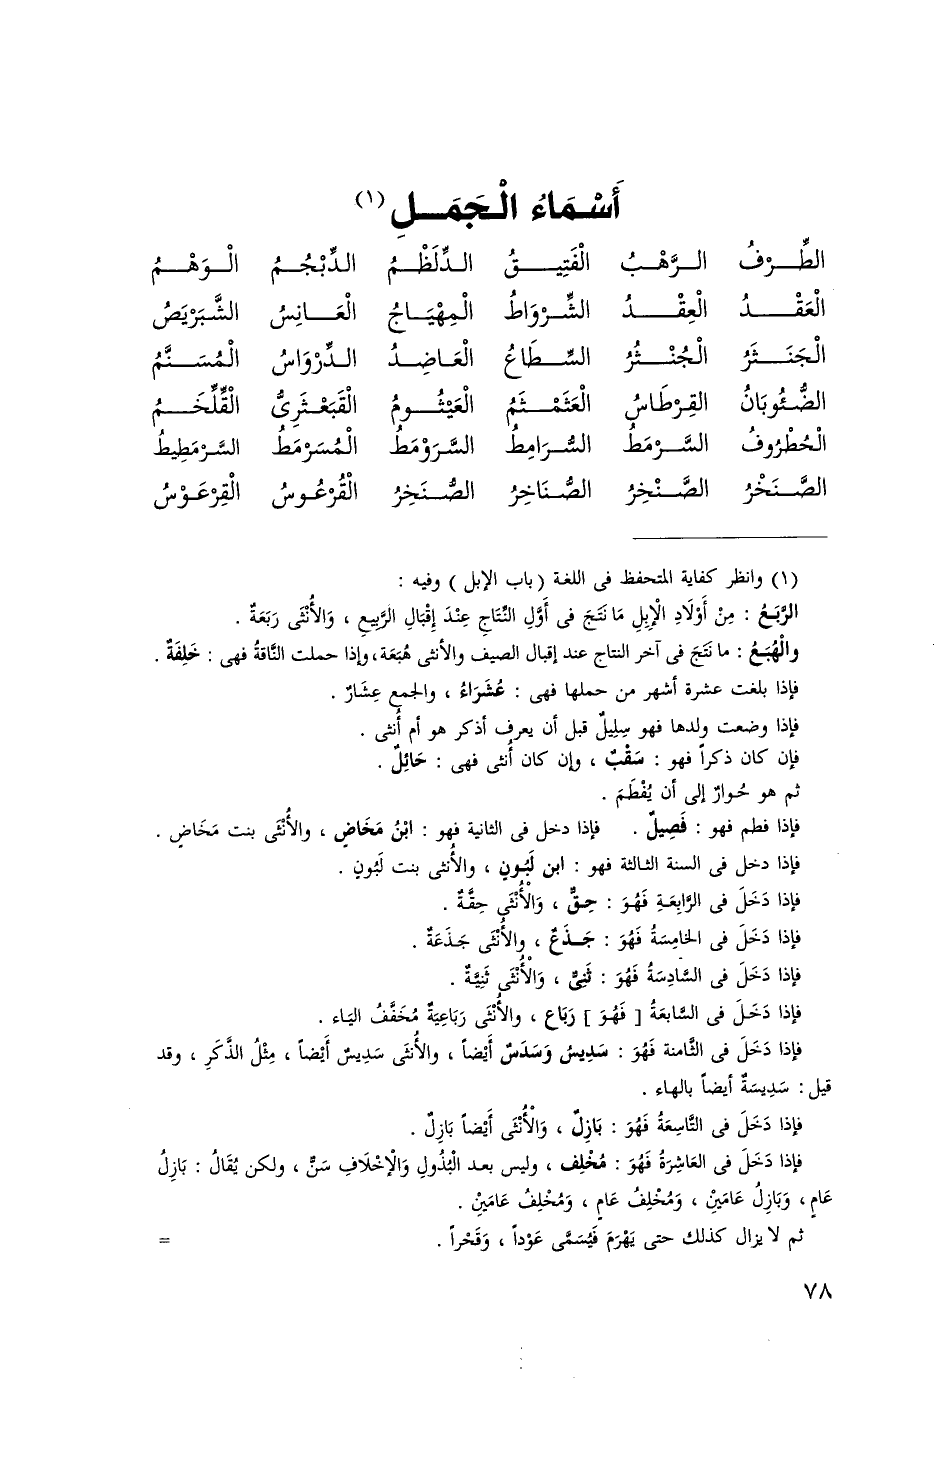 أَسْمَاءُ الْجَمَلِ (١)
الطِّرْفُ الرَّهْبُ الْفَتِيقُ الدِّلَظْمُ الدِّبْجُمُ الْوَهْمُ
الْعَقْدُ الْعِقْدُ الشِّرْوَاطُ الْمِهْيَاجُ الْعَانِسُ الشَّبَرْبَصُ
الْجَنَثَرُ الْجُنْثُرُ السِّطَاعُ الْعَاضِدُ الدِّرْوَاسُ الْمُسَنَّمُ
الضُّئُوبَانُ القِرْطَاسُ الْعَثَمْثَمُ الْعَيْثُومُ الْقَبَعْثَرِىُّ الْقِلَّخْمُ
الْحُطْرُوفُ السَّرْمَطُ السُّرَامِطُ السَّرَوْمَطُ الْمُسَرْمَطُ السَّرْمَطِيطُ
الصَّنَخْرُ الصَّنْخِرُ الصُّنَاخِرُ الصُّنَخِرُ الْقُرْعُوسُ الْقِرْعَوْسُ
(١) وانظر كفاية المتحفظ فى اللغة (باب الإبل) وفيه :
الرُّبَعُ : مِنْ أَوْلَادِ الْإِبِلِ مَا نَتَجَ فى أَوَّلِ النِّتَاجِ عِنْدَ إِقْبَالِ الرَّبِيعِ ، وَالأُنْثَى رَبَعَةٌ .
والْهُبَعُ : ما نَتَجَ فى آخر النتاج عند إقبال الصيف والأنثى هُبَعَة، وإذا حملت النَّاقةُ فهى : خَلِفَةٌ .
فإذا بلغت عشرة أشهر من حملها فهى : عُشَرَاءُ ، والجمع عِشَارٌ .
فإذا وضعت ولدها فهو سِلِيلٌ قبل أن يعرف أذكر هو أم أُنثى .
فإن كان ذكراً فهو : سَقْبٌ ، وإن كان أُنثى فهى : حَائِلٌ .
ثم هو حُوارٌ إلى أن يُفْطَمَ .
فإذا فطم فهو : فَصِيلٌ . فإذا دخل فى الثانية فهو : ابْنُ مَخَاضٍ ، والأُنْثَى بنت مَخَاضٍ .
فإذا دخل فى السنة الثالثة فهو : ابن لَبُونٍ ، والأُنثى بنت لَبُونٍ .
فإذا دَخَلَ فى الرَّابِعَةِ فَهُوَ : حِقٌّ ، وَالْأُنْثَى حِقَّةٌ .
فإذا دَخَلَ فى الخامِسَةُ فَهُوَ : جَذَعٌ ، والأُنْثَى جَذَعَةٌ .
فإذا دَخَلَ فى السَّادِسَةُ فَهُوَ : ثَنِىٌّ ، وَالْأُنْثَى ثَنِيَّةٌ .
فإذا دَخَلَ فى السَّابعَةُ [ فَهُوَ ] رَبَاعٍ ، والأُنْثَى رَبَاعِيَةٌ مُخَفَّفُ اليَاء .
فإذا دَخَلَ فى الثَّامنة فَهُوَ : سَدِيسٌ وَسَدَسٌ أَيْضاً ، والأُنثَى سَدِيسٌ أَيْضاً ، مِثْلُ الذَّكَرِ ، وقد
قيل : سَدِيسَةٌ أيضاً بالهاء .
فإذا دَخَلَ فى التَّاسِعَةُ فَهُوَ : بَازِلٌ ، وَالْأُنْثَى أَيْضاً بَازِلٌ .
فإذا دَخَلَ فى العَاشِرَةُ فَهُوَ : مُخْلِف ، وليس بعد الْبُذُولِ وَالْإِخْلَافِ سَنٌّ ، ولكن يُقَالُ : بَازِلُ
عَامٍ ، وَبَازِلُ عَامَيْنِ ، وَمُخْلِفُ عَامٍ ، وَمُخْلِفُ عَامَيْنِ .
ثم لا يزال كذلك حتى يَهْرَمَ فَيُسَمَّى عَوْداً ، وَقَحْراً . =
٧٨